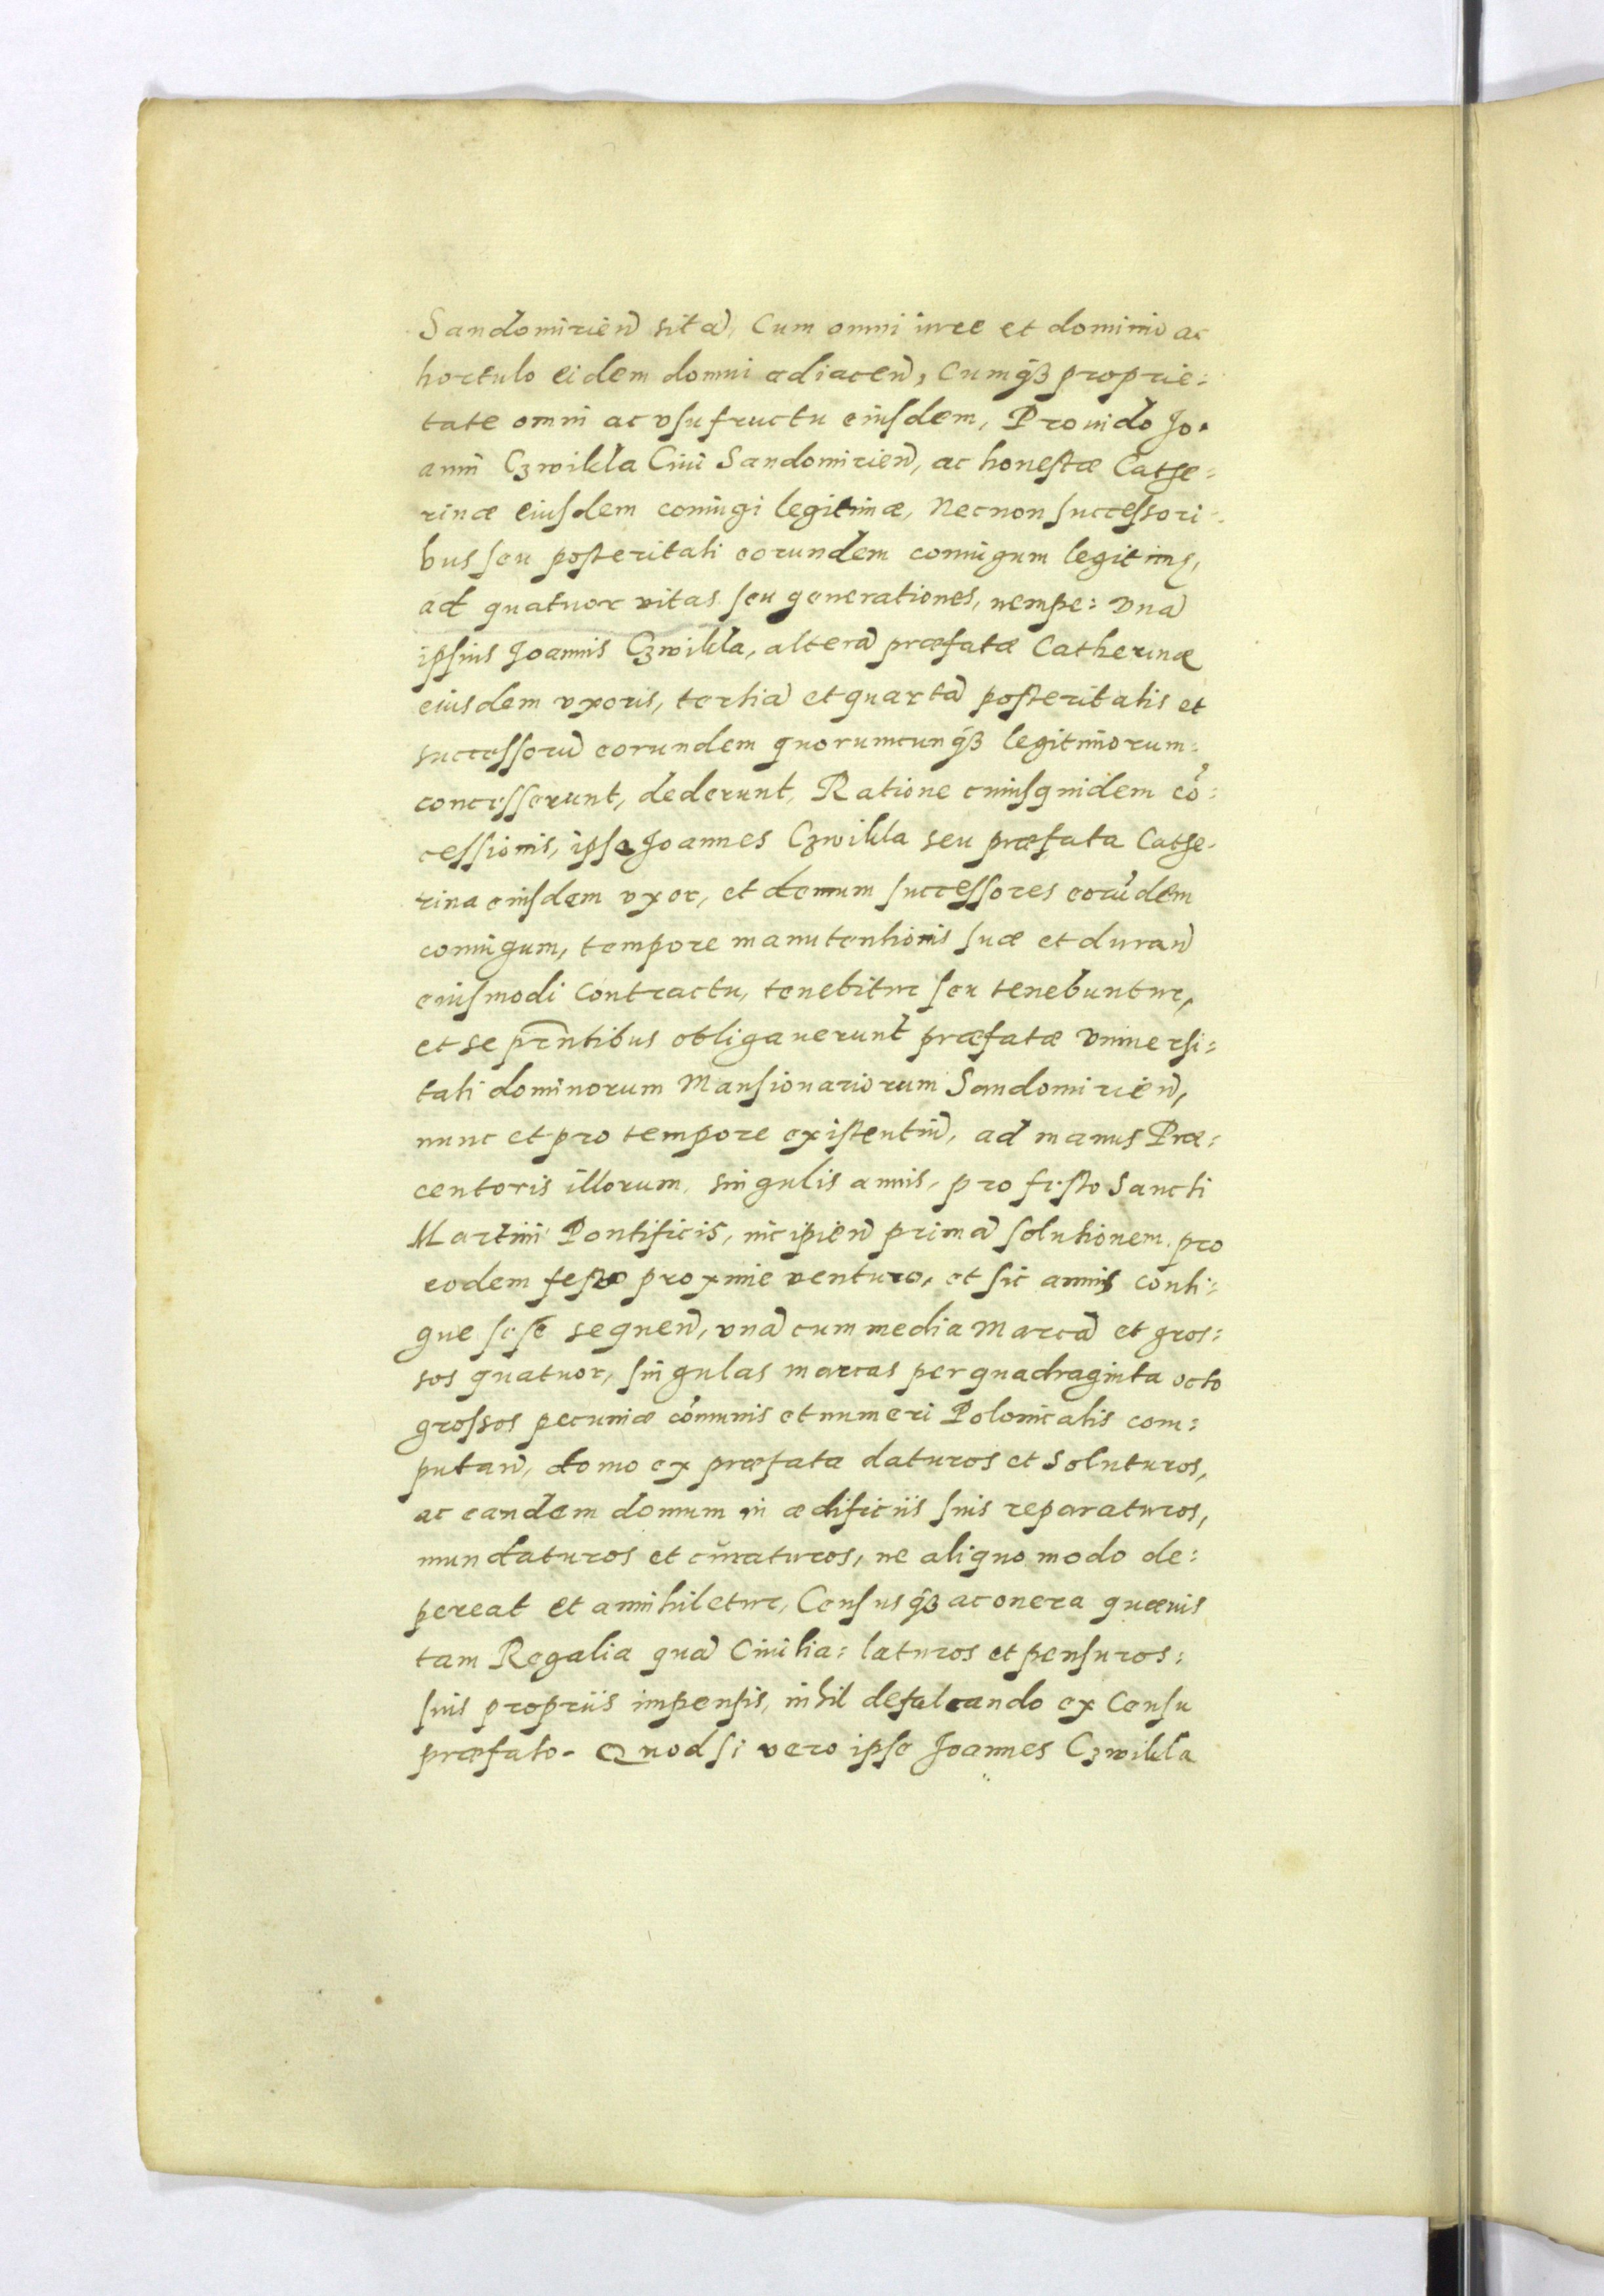 Sandomirien̄ sitā, Cum omni iure et dominio ac
hortulo eidem domui adiacen̄, Cumq̃ꝫ proprie:
tate omni ac vsufructu eiusdem, Prouido Jo.
anni Czwikla Ciui Sandomirien̄, ac honestæ Cathe:
rinæ eiusdem coniugi legitimæ, Necnon successori:
bus seu posteritati eorundem coniugum legitimę,
ad quatuor vitas seu generationes, nempe: vnā
ipsius Joannis Czwikla, alterā præfatæ Catherinæ
eiusdem vxoris, tertiā et quartā posteritatis et
successorū eorundem quorumcunq̃ꝫ legitimorum:
concesserunt, dederunt, Ratione cuiusquidem cō:
cessionis, ipse Joannes Czwikla seu præfata Cathe.
rina eiusdem vxor, et demum successores eorūdem
coniugum, tempore manutentionis suæ et duran̄
eiusmodi Contractu, tenebitur seu tenebuntur,
et se pr̄ntibus obligauerunt præfatæ Vniuersi:
tati dominorum Mansionariorum Sandomirien̄,
nunc et pro tempore existentiū, ad manus Præ:
centoris illorum, singulis annis, pro festo Sancti
Martini Pontificis, incipien̄ primā solutionem pro
eodem festo proxime venturo, et sic annis conti:
gue sese sequen̄, vnā cum media Marcā et gros:
sos quatuor, singulas marcas per quadraginta octo
grossos pecuniæ cōmunis et numeri Polonicalis com:
putan̄, domo ex præfata daturos et soluturos,
ac eandem domum in ædificiis suis reparaturos,
mundaturos et curaturos, ne aliquo modo de:
pereat et annihiletur, Censusq̃ꝫ ac onera quævis
tam Regalia quā Ciuilia: laturos et pensuros:
suis propriis impensis, nihil defalcando ex Censu
præfato. Quod si vero ipse Joannes Czwikla